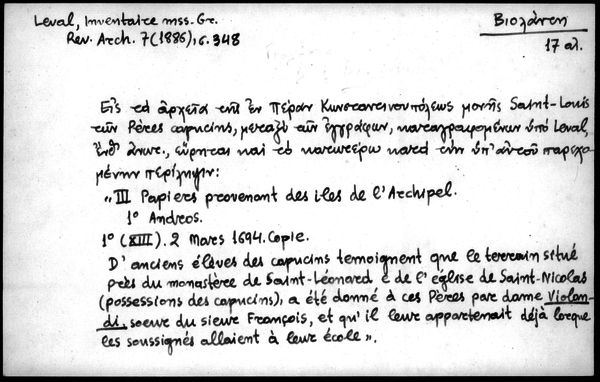 Leval, Inventaire mss. Gr.
Βιολάντη
Rev. Arch. 7 (1886), σ. 348
17 αἰ.
Εἰς τὰ ἀρχεῖα τῆς ἐν Πέραν Κωνσταντινουπόλεως μονῆς Saint-Louis
τῶν Pères capucins, μεταξὺ τῶν ἐγγράφων, καταγραφομένων ὑπὸ Leval,
ἔνθ' ἀνωτ., εὕρηται καὶ τὸ κατωτέρω κατὰ τὴν ὑπ' αὐτοῦ παρεχο-
μένην περίληψιν:
"III Papiers provenant des iles de l'Archipel.
1º Andros.
1º (XIII). 2 Mars 1694. Copie.
D'anciens élèves des capucins temoignent que le terrain situé
près du monastère de Saint-Léonard e de l'église de Saint-Nicolas
(possessions des capucins), a été donné à ces Pères par dame Violan-
di, soeur du sieur François, et qu'il leur appartenait déjà lorque
les soussignés allaient à leur école".